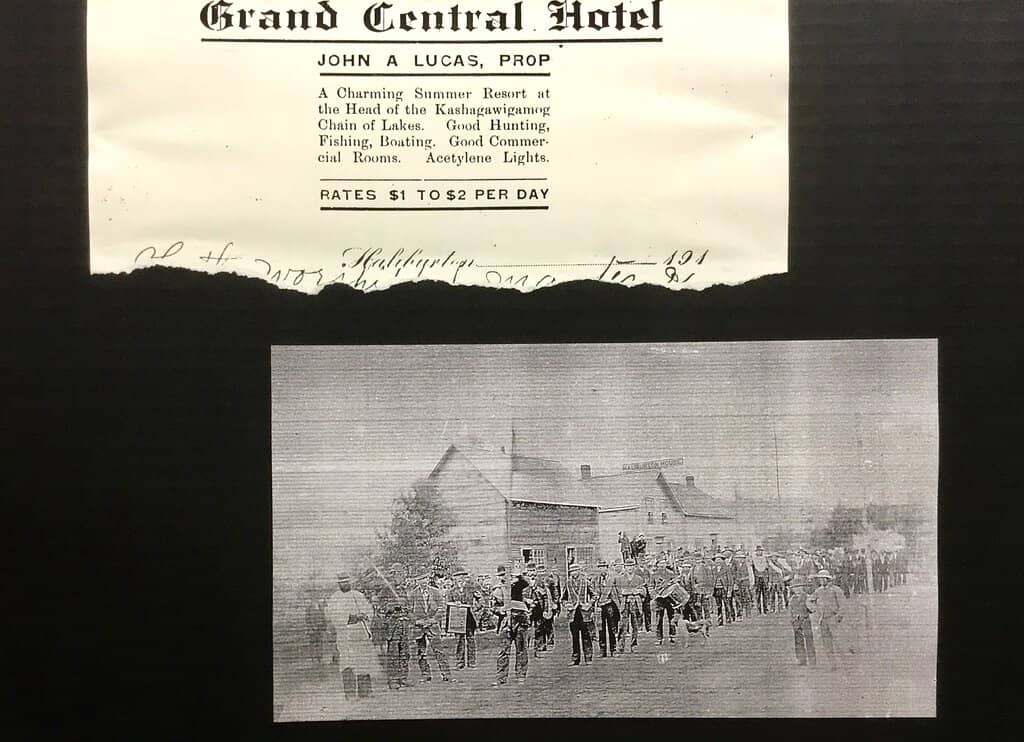 Grand Central Hotel
JOHN A LUCAS, PROP
A Charming Summer Resort at
the Head of the Kashagawigamog
Chain of Lakes. Good Hunting,
Fishing, Boating. Good Commer-
cial Rooms. Acetylene Lights.
RATES $1 TO $2 PER DAY
Haliburton 191
HALIBURTON HOUSE